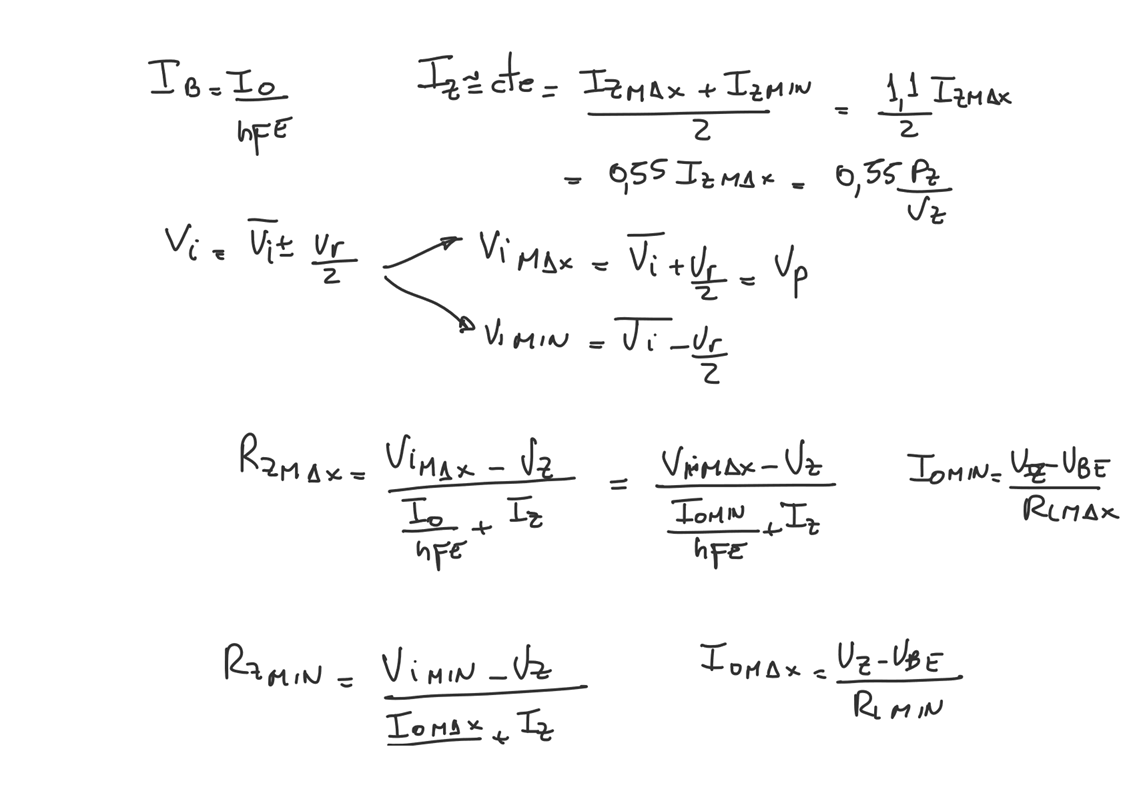 I_B = I_O / hFE    I_Z ≅ cte = (I_ZMAX + I_ZMIN) / 2 = 1,1/2 I_ZMAX
= 0,55 I_ZMAX = 0,55 P_Z / V_Z
V_i = V̅_i ± V_r / 2    V_iMAX = V̅_i + V_r / 2 = V_p
V_iMIN = V̅_i - V_r / 2
R_ZMAX = (V_iMAX - V_Z) / (I_O / hFE + I_Z) = (V_iMAX - V_Z) / (I_OMIN / hFE + I_Z)    I_OMIN = (V_Z - V_BE) / R_LMAX
R_ZMIN = (V_iMIN - V_Z) / (I_OMAX + I_Z)    I_OMAX = (V_Z - V_BE) / R_LMIN